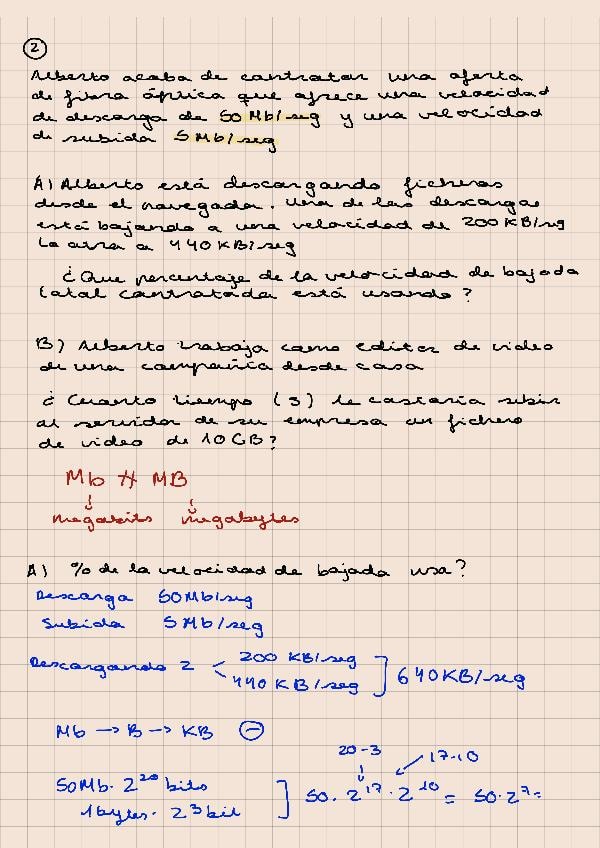 2
Alberto acaba de contratar una oferta
de fibra óptica que ofrece una velocidad
de descarga de 50 Mb/seg y una velocidad
de subida 5 Mb/seg
A) Alberto está descargando ficheros
desde el navegador. Una de las descargas
está bajando a una velocidad de 200 KB/seg
la otra a 440 KB/seg
¿Que porcentaje de la velocidad de bajada
total contratada está usando?
B) Alberto trabaja como editor de video
de una compañia desde casa
¿Cuanto tiempo (s) le costaria subir
al servidor de su empresa un fichero
de video de 10GB?
Mb ≠ MB
↓ ↓
megabits megabytes
A) % de la velocidad de bajada usa?
Descarga 50Mb/seg
Subida 5Mb/seg
Descargando 2 < 200 KB/seg
440 KB/seg ] 640KB/seg
Mb → B → KB ⊖
20-3 17-10
50Mb · 2^20 bits
1bytes · 2^3 bit ] 50 · 2^17 · 2^10 = 50·2^7=